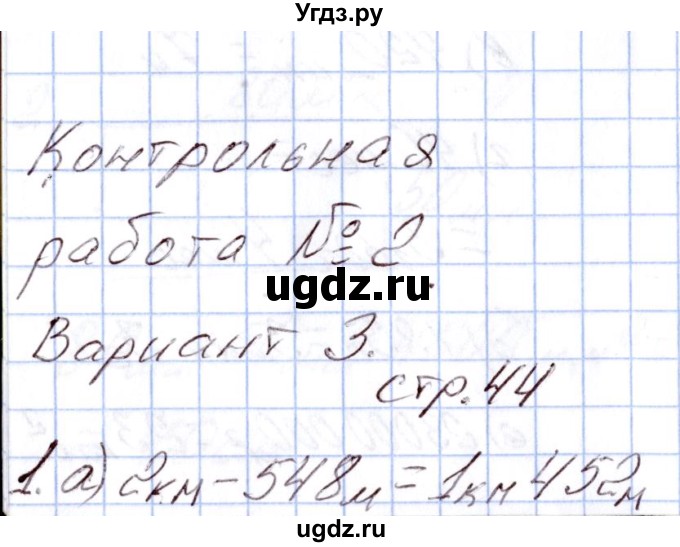 Угдз.ру
Контрольная
работа № 2.
ugdz.ru
Вариант 3.
стр. 44
1. а) 2км - 548м = 1км 452м
ugdz.ru